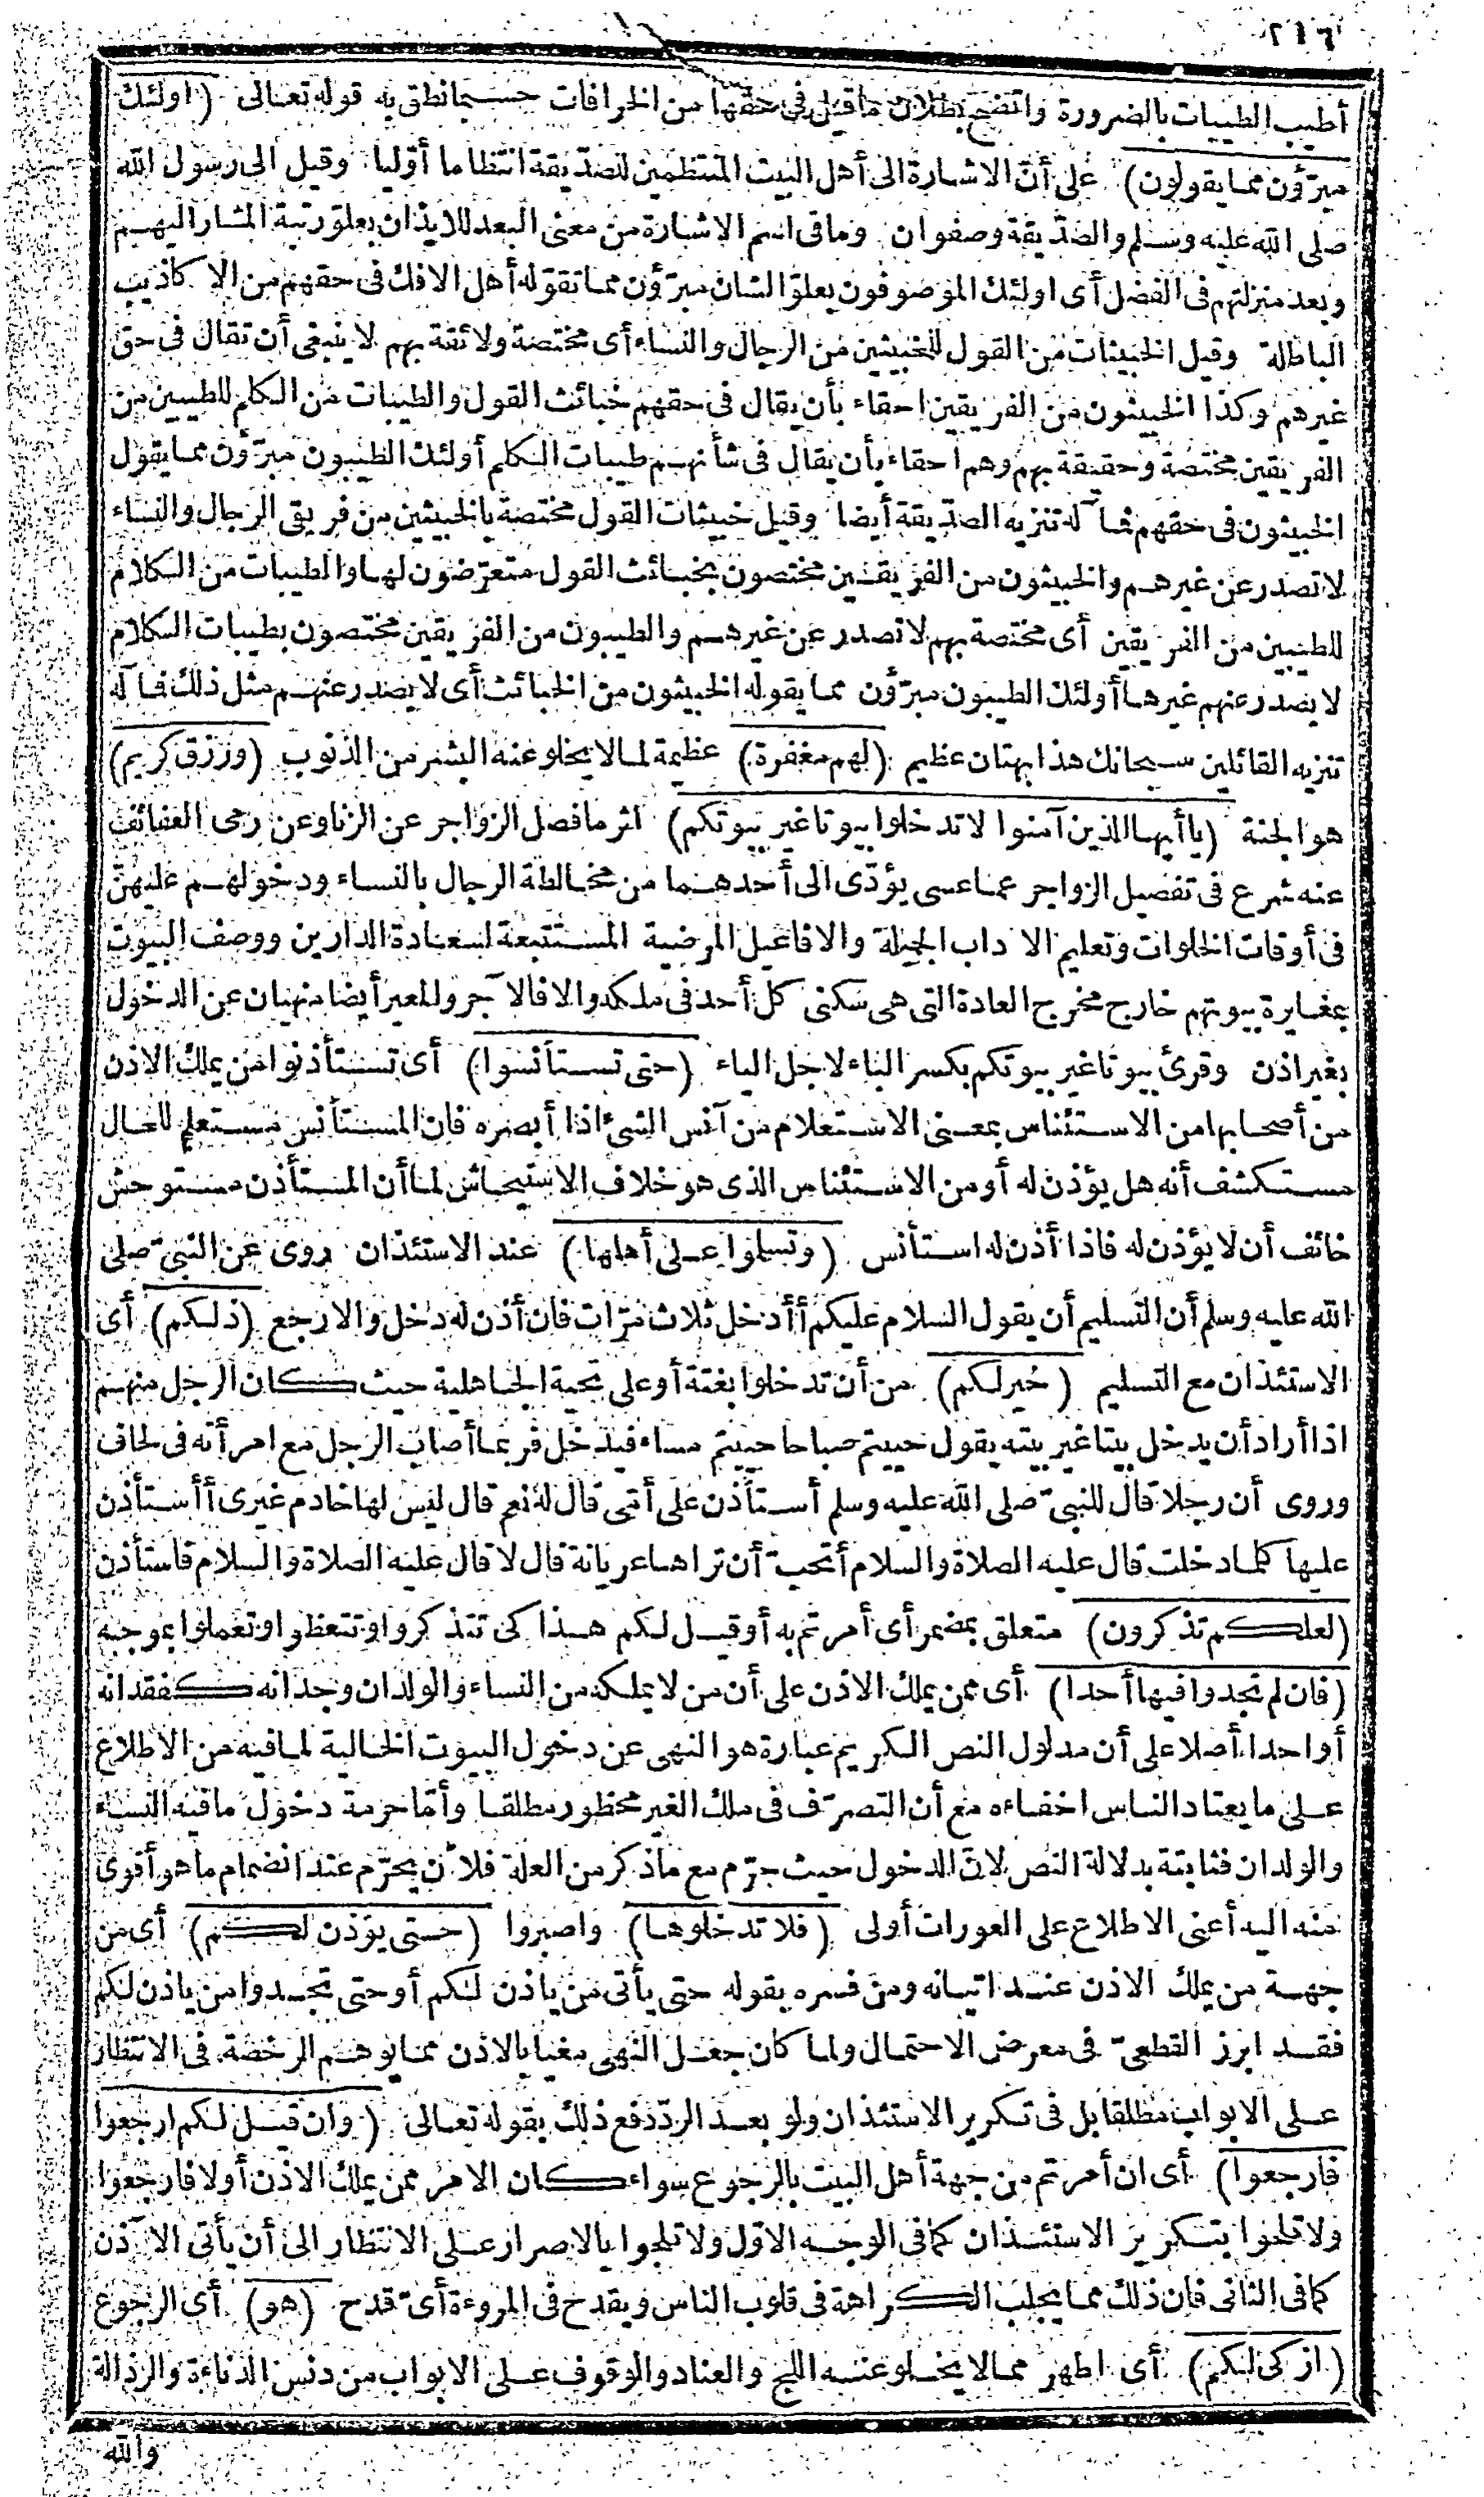 ٢١٦
أطيب الطيبات بالضرورة واتضح بطلان ما قيل في حقها من الخرافات حسبما نطق به قوله تعالى (اولئك
مبرّؤن مما يقولون) على أنّ الاشارة الى أهل البيت المنتظمين للصدّيقة انتظاما أوّليا وقيل الى رسول الله
صلى الله عليه وسلم والصدّيقة وصفوان وما فى اسم الاشارة من معنى البعد للايذان بعلوّ رتبة المشار اليهم
وبعد منزلتهم فى الفضل أى اولئك الموصوفون بعلوّ الشان مبرّؤن مما تقوّله أهل الافك فى حقهم من الاكاذيب
الباطلة وقيل الخبيثات من القول للخبيثين من الرجال والنساء أى مختصة ولائقة بهم لا ينبغى أن تقال فى حق
غيرهم وكذا الخبيثون من الفريقين احقاء بأن يقال فى حقهم خبائث القول والطيبات من الكلم للطيبين من
الفريقين مختصة وحقيقة بهم وهم احقاء بأن يقال فى شأنهم طيبات الكلم أولئك الطيبون مبرّؤن مما يقول
الخبيثون فى حقهم فما آله تنزيه الصدّيقة أيضا وقيل خبيثات القول مختصة بالخبيثين من فريقى الرجال والنساء
لا تصدر عن غيرهم والخبيثون من الفريقين مختصون بخبائث القول متعرّضون لها والطيبات من الكلام
للطيبين من الفريقين أى مختصة بهم لا تصدر عن غيرهم والطيبون من الفريقين مختصون بطيبات الكلام
لا يصدر عنهم غيرها أولئك الطيبون مبرّؤن مما يقوله الخبيثون من الخبائث أى لا يصدر عنهم مثل ذلك فمآله
تنزيه القائلين سبحانك هذا بهتان عظيم (لهم مغفرة) عظيمة لما لا يخلو عنه البشر من الذنوب (ورزق كريم)
هو الجنة (يا أيها الذين آمنوا لا تدخلوا بيوتا غير بيوتكم) اثر ما فصل الزواجر عن الزنا وعن رمى العفائف
عنه شرع فى تفصيل الزواجر عما عسى يؤدّى الى أحدهما من مخالطة الرجال بالنساء ودخولهم عليهنّ
فى أوقات الخلوات وتعليم الآداب الجميلة والافاعيل المرضية المستتبعة لسعادة الدارين ووصف البيوت
بمغايرة بيوتهم خارج مخرج العادة التى هى سكنى كل أحد فى ملكه والا فالآجر والمعير أيضا منهيان عن الدخول
بغير اذن وقرئ بيوتا غير بيوتكم بكسر الباء لاجل الياء (حتى تستأنسوا) أى تستأذنوا من يملك الاذن
من أصحابها من الاستئناس بمعنى الاستعلام من آنس الشئ اذا أبصره فان المستأنس مستعلم للحال
مستكشف أنه هل يؤذن له أو من الاستئناس الذى هو خلاف الاستيحاش لما أن المستأذن مستوحش
خائف أن لا يؤذن له فاذا أذن له استأنس (وتسلموا على أهلها) عند الاستئذان روى عن النبىّ صلى
الله عليه وسلم أن التسليم أن يقول السلام عليكم أأدخل ثلاث مرّات فان أذن له دخل والا رجع (ذلكم) أى
الاستئذان مع التسليم (خير لكم) من أن تدخلوا بغتة أو على تحية الجاهلية حيث كان الرجل منهم
اذا أراد أن يدخل بيتا غير بيته يقول حييتم صباحا حييتم مساء فيدخل فربما أصاب الرجل مع امرأته فى لحاف
وروى أن رجلا قال للنبىّ صلى الله عليه وسلم أستأذن على أمّى قال له نعم قال ليس لها خادم غيرى أأستأذن
عليها كلما دخلت قال عليه الصلاة والسلام أتحبّ أن تراها عريانة قال لا قال عليه الصلاة والسلام فاستأذن
(لعلكم تذكرون) متعلق بمضمر أى أمرتم به أو قيل لكم هذا كى تتذكروا وتتعظوا وتعملوا بموجبه
(فان لم تجدوا فيها أحدا) أى ممن يملك الاذن على أن من لا يملكه من النساء والولدان وجدانه كفقدانه
أو احدا أصلا على أن مدلول النص الكريم عبارة هو النهى عن دخول البيوت الخالية لما فيه من الاطلاع
على ما يعتاد الناس اخفاءه مع أن التصرّف فى ملك الغير محظور مطلقا وأمّا حرمة دخول ما فيه النساء
والولدان فثابتة بدلالة النص لانّ الدخول حيث حرّم مع ما ذكر من العلة فلأن يحرّم عند انضمام ما هو أقوى
منه اليه أعنى الاطلاع على العورات أولى (فلا تدخلوها) واصبروا (حتى يؤذن لكم) أى من
جهة من يملك الاذن عند اتيانه ومن فسره بقوله حتى يأتى من ياذن لكم أو حتى تجدوا من ياذن لكم
فقد ابرز القطعىّ فى معرض الاحتمال ولما كان جعل النهى مغيا بالاذن مما يوهم الرخصة فى الانتظار
على الابواب مطلقا بل فى تكرير الاستئذان ولو بعد الردّ دفع ذلك بقوله تعالى (وان قيل لكم ارجعوا
فارجعوا) أى ان أمرتم من جهة أهل البيت بالرجوع سواء كان الامر ممن يملك الاذن أولا فارجعوا
ولا تلحوا بتكرير الاستئذان كما فى الوجه الاوّل ولا تلجوا بالاصرار على الانتظار الى أن يأتى الآذن
كما فى الثانى فان ذلك مما يجلب الكراهة فى قلوب الناس ويقدح فى المروءة أىّ قدح (هو) أى الرجوع
(ازكى لكم) أى اطهر مما لا يخلو عنه اللج والعناد والوقوف على الابواب من دنس الدناءة والرذالة
والله